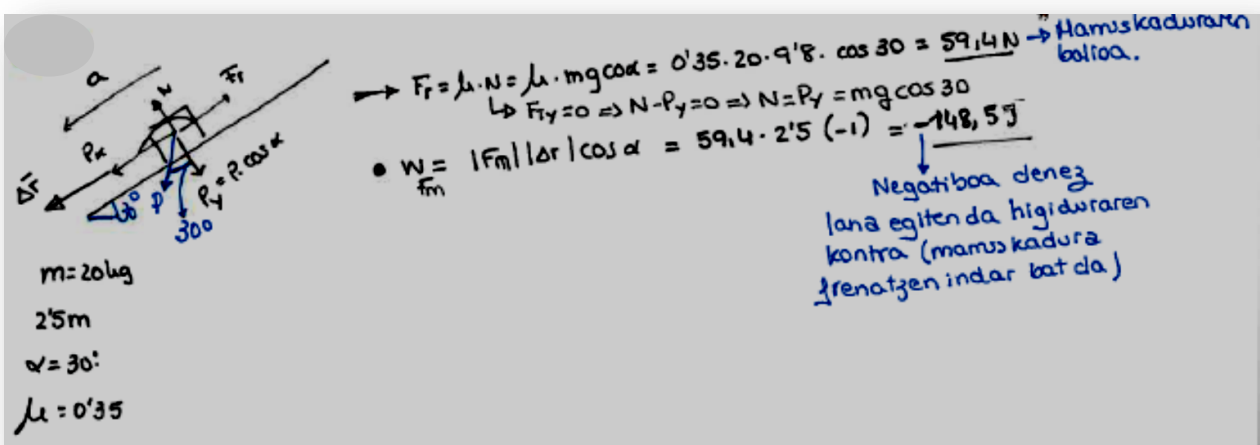 a
N
Fr
Px
Δr
30°
P
Py = P·cosα
30º
m=20kg
2'5m
α=30º
μ=0'35
→ Fr=μ·N=μ·mgcosα= 0'35·20·9'8·cos 30 = 59,4N → Marruskaduraren
balioa.
↳ FTy=0 => N-Py=0 => N=Py=mgcos30
• W = |Fm||Δr|cos α = 59,4·2'5 (-1) = -148,5J
Fm
Negatiboa denez
lana egiten da higiduraren
kontra (marruskadura
frenatzen indar bat da)